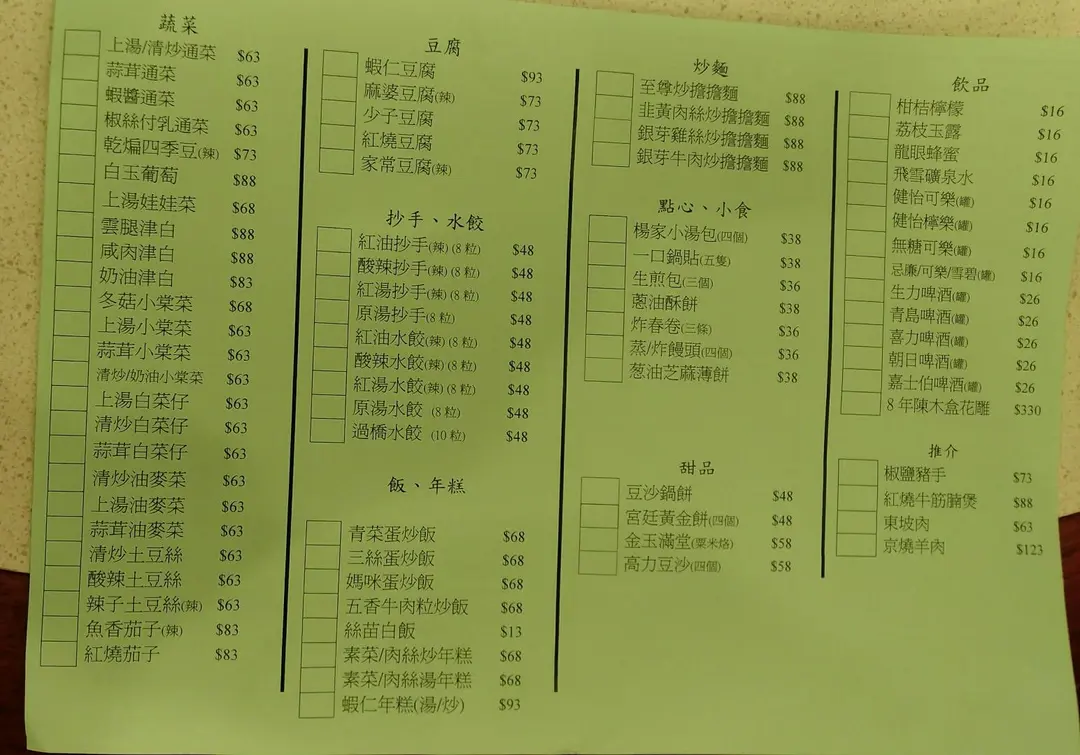 蔬菜
上湯/清炒通菜 $63
蒜茸通菜 $63
蝦醬通菜 $63
椒絲付乳通菜 $63
乾煸四季豆(辣) $73
白玉葡萄 $88
上湯娃娃菜 $68
雲腿津白 $88
咸肉津白 $88
奶油津白 $83
冬菇小棠菜 $68
上湯小棠菜 $63
蒜茸小棠菜 $63
清炒/奶油小棠菜 $63
上湯白菜仔 $63
清炒白菜仔 $63
蒜茸白菜仔 $63
清炒油麥菜 $63
上湯油麥菜 $63
蒜茸油麥菜 $63
清炒土豆絲 $63
酸辣土豆絲 $63
辣子土豆絲(辣) $63
魚香茄子(辣) $83
紅燒茄子 $83
豆腐
蝦仁豆腐 $93
麻婆豆腐(辣) $73
少子豆腐 $73
紅燒豆腐 $73
家常豆腐(辣) $73
抄手、水餃
紅油抄手(辣)(8 粒) $48
酸辣抄手(辣)(8 粒) $48
紅湯抄手(辣)(8 粒) $48
原湯抄手(8 粒) $48
紅油水餃(辣)(8 粒) $48
酸辣水餃(辣)(8 粒) $48
紅湯水餃(辣)(8 粒) $48
原湯水餃 (8 粒) $48
過橋水餃 (10 粒) $48
飯、年糕
青菜蛋炒飯 $68
三絲蛋炒飯 $68
媽咪蛋炒飯 $68
五香牛肉粒炒飯 $68
絲苗白飯 $13
素菜/肉絲炒年糕 $68
素菜/肉絲湯年糕 $68
蝦仁年糕(湯/炒) $93
炒麵
至尊炒擔擔麵 $88
韭黃肉絲炒擔擔麵 $88
銀芽雞絲炒擔擔麵 $88
銀芽牛肉炒擔擔麵 $88
點心、小食
楊家小湯包(四個) $38
一口鍋貼(五隻) $38
生煎包(三個) $36
蔥油酥餅 $38
炸春卷(三條) $36
蒸/炸饅頭(四個) $36
葱油芝蔴薄餅 $38
甜品
豆沙鍋餅 $48
宮廷黃金餅(四個) $48
金玉滿堂(粟米烙) $58
高力豆沙(四個) $58
飲品
柑桔檸檬 $16
荔枝玉露 $16
龍眼蜂蜜 $16
飛雪礦泉水 $16
健怡可樂(罐) $16
健怡檸樂(罐) $16
無糖可樂(罐) $16
忌廉/可樂/雪碧(罐) $16
生力啤酒(罐) $26
青島啤酒(罐) $26
喜力啤酒(罐) $26
朝日啤酒(罐) $26
嘉士伯啤酒(罐) $26
8 年陳木盒花雕 $330
推介
椒鹽豬手 $73
紅燒牛筋腩煲 $88
東坡肉 $63
京燒羊肉 $123